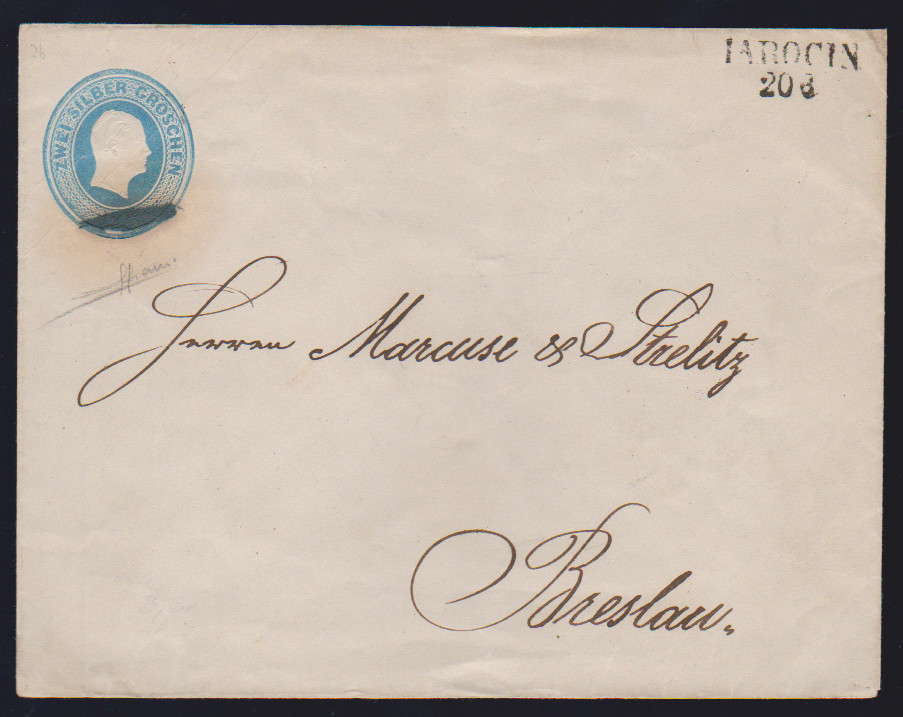 IAROCIN
20 6
ZWEI SILBER GROSCHEN
Herren Marcuse & Strelitz
Breslau